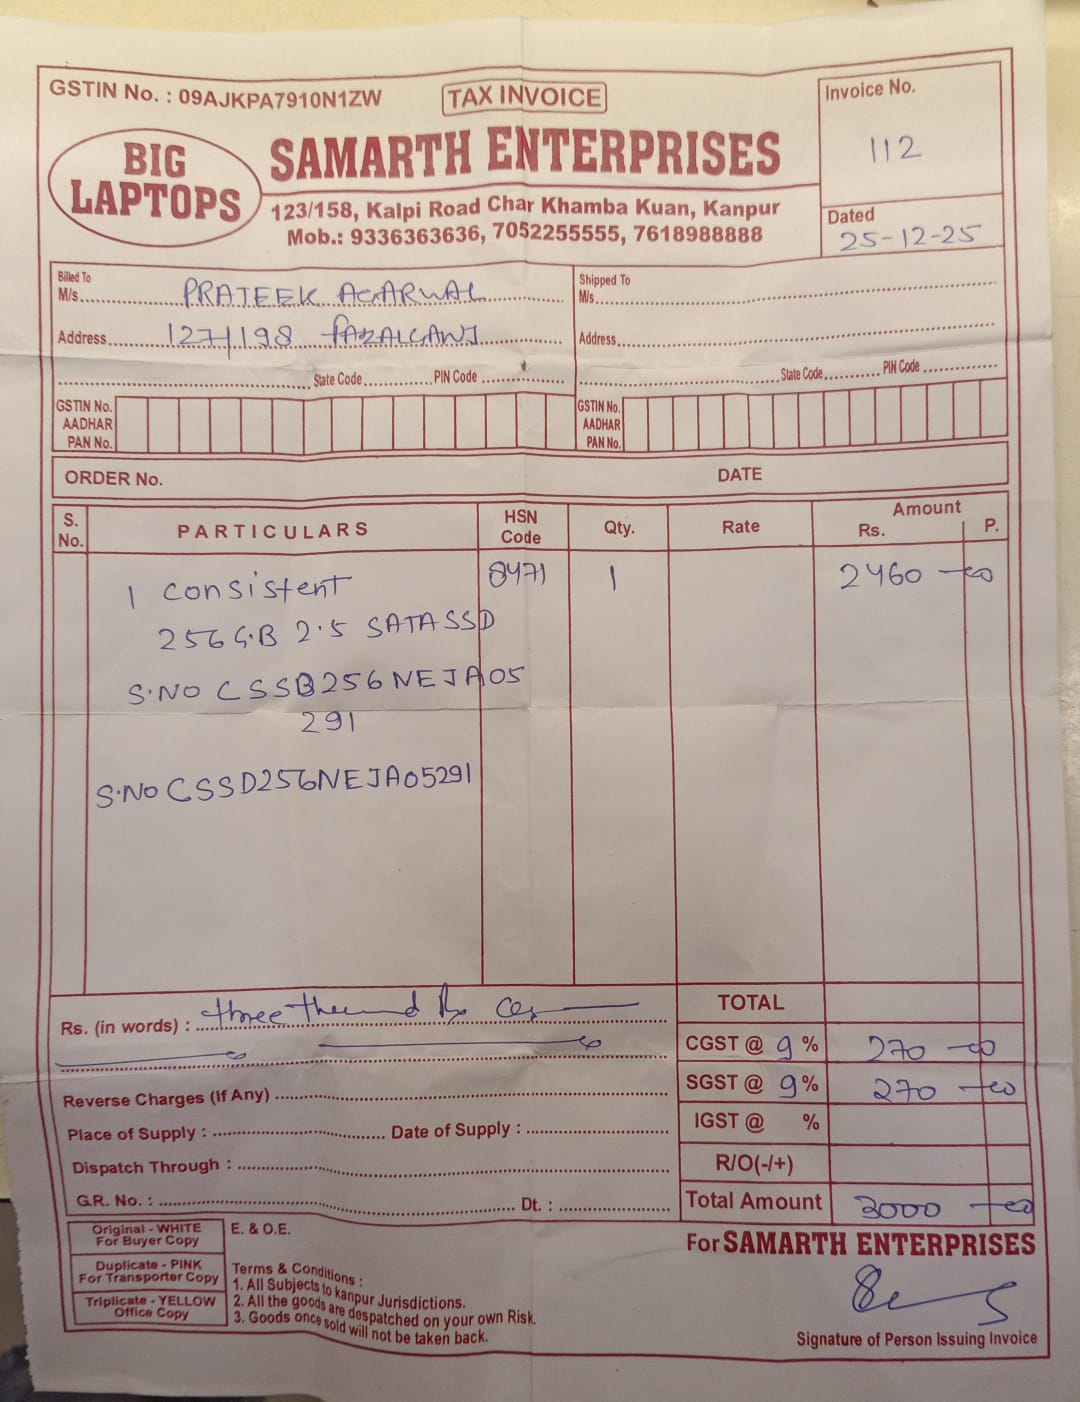 GSTIN No. : 09AJKPA7910N1ZW
TAX INVOICE
Invoice No.
112
BIG
LAPTOPS
SAMARTH ENTERPRISES
123/158, Kalpi Road Char Khamba Kuan, Kanpur
Mob.: 9336363636, 7052255555, 7618988888
Dated
25-12-25
Billed To
M/s. PRATEEK AGARWAL
Address 127/198 FAZALGANJ
State Code PIN Code
GSTIN No.
AADHAR
PAN No.
Shipped To
M/s.
Address
State Code PIN Code
GSTIN No.
AADHAR
PAN No.
ORDER No. DATE
S. No. PARTICULARS HSN Code Qty. Rate Amount Rs. P.
1 consistent 8471 1 2460
256 G.B 2.5 SATA SSD
S.NO CSSB256NEJA05
291
S.NO CSSD256NEJA05291
Rs. (in words) : three
TOTAL
CGST @ 9 % 270
SGST @ 9 % 270
IGST @ %
R/O(-/+)
Total Amount 3000
Reverse Charges (If Any)
Place of Supply : Date of Supply :
Dispatch Through :
G.R. No. : Dt. :
Original - WHITE
For Buyer Copy
Duplicate - PINK
For Transporter Copy
Triplicate - YELLOW
Office Copy
E. & O.E.
Terms & Conditions :
1. All Subjects to kanpur Jurisdictions.
2. All the goods are despatched on your own Risk.
3. Goods once sold will not be taken back.
For SAMARTH ENTERPRISES
Signature of Person Issuing Invoice